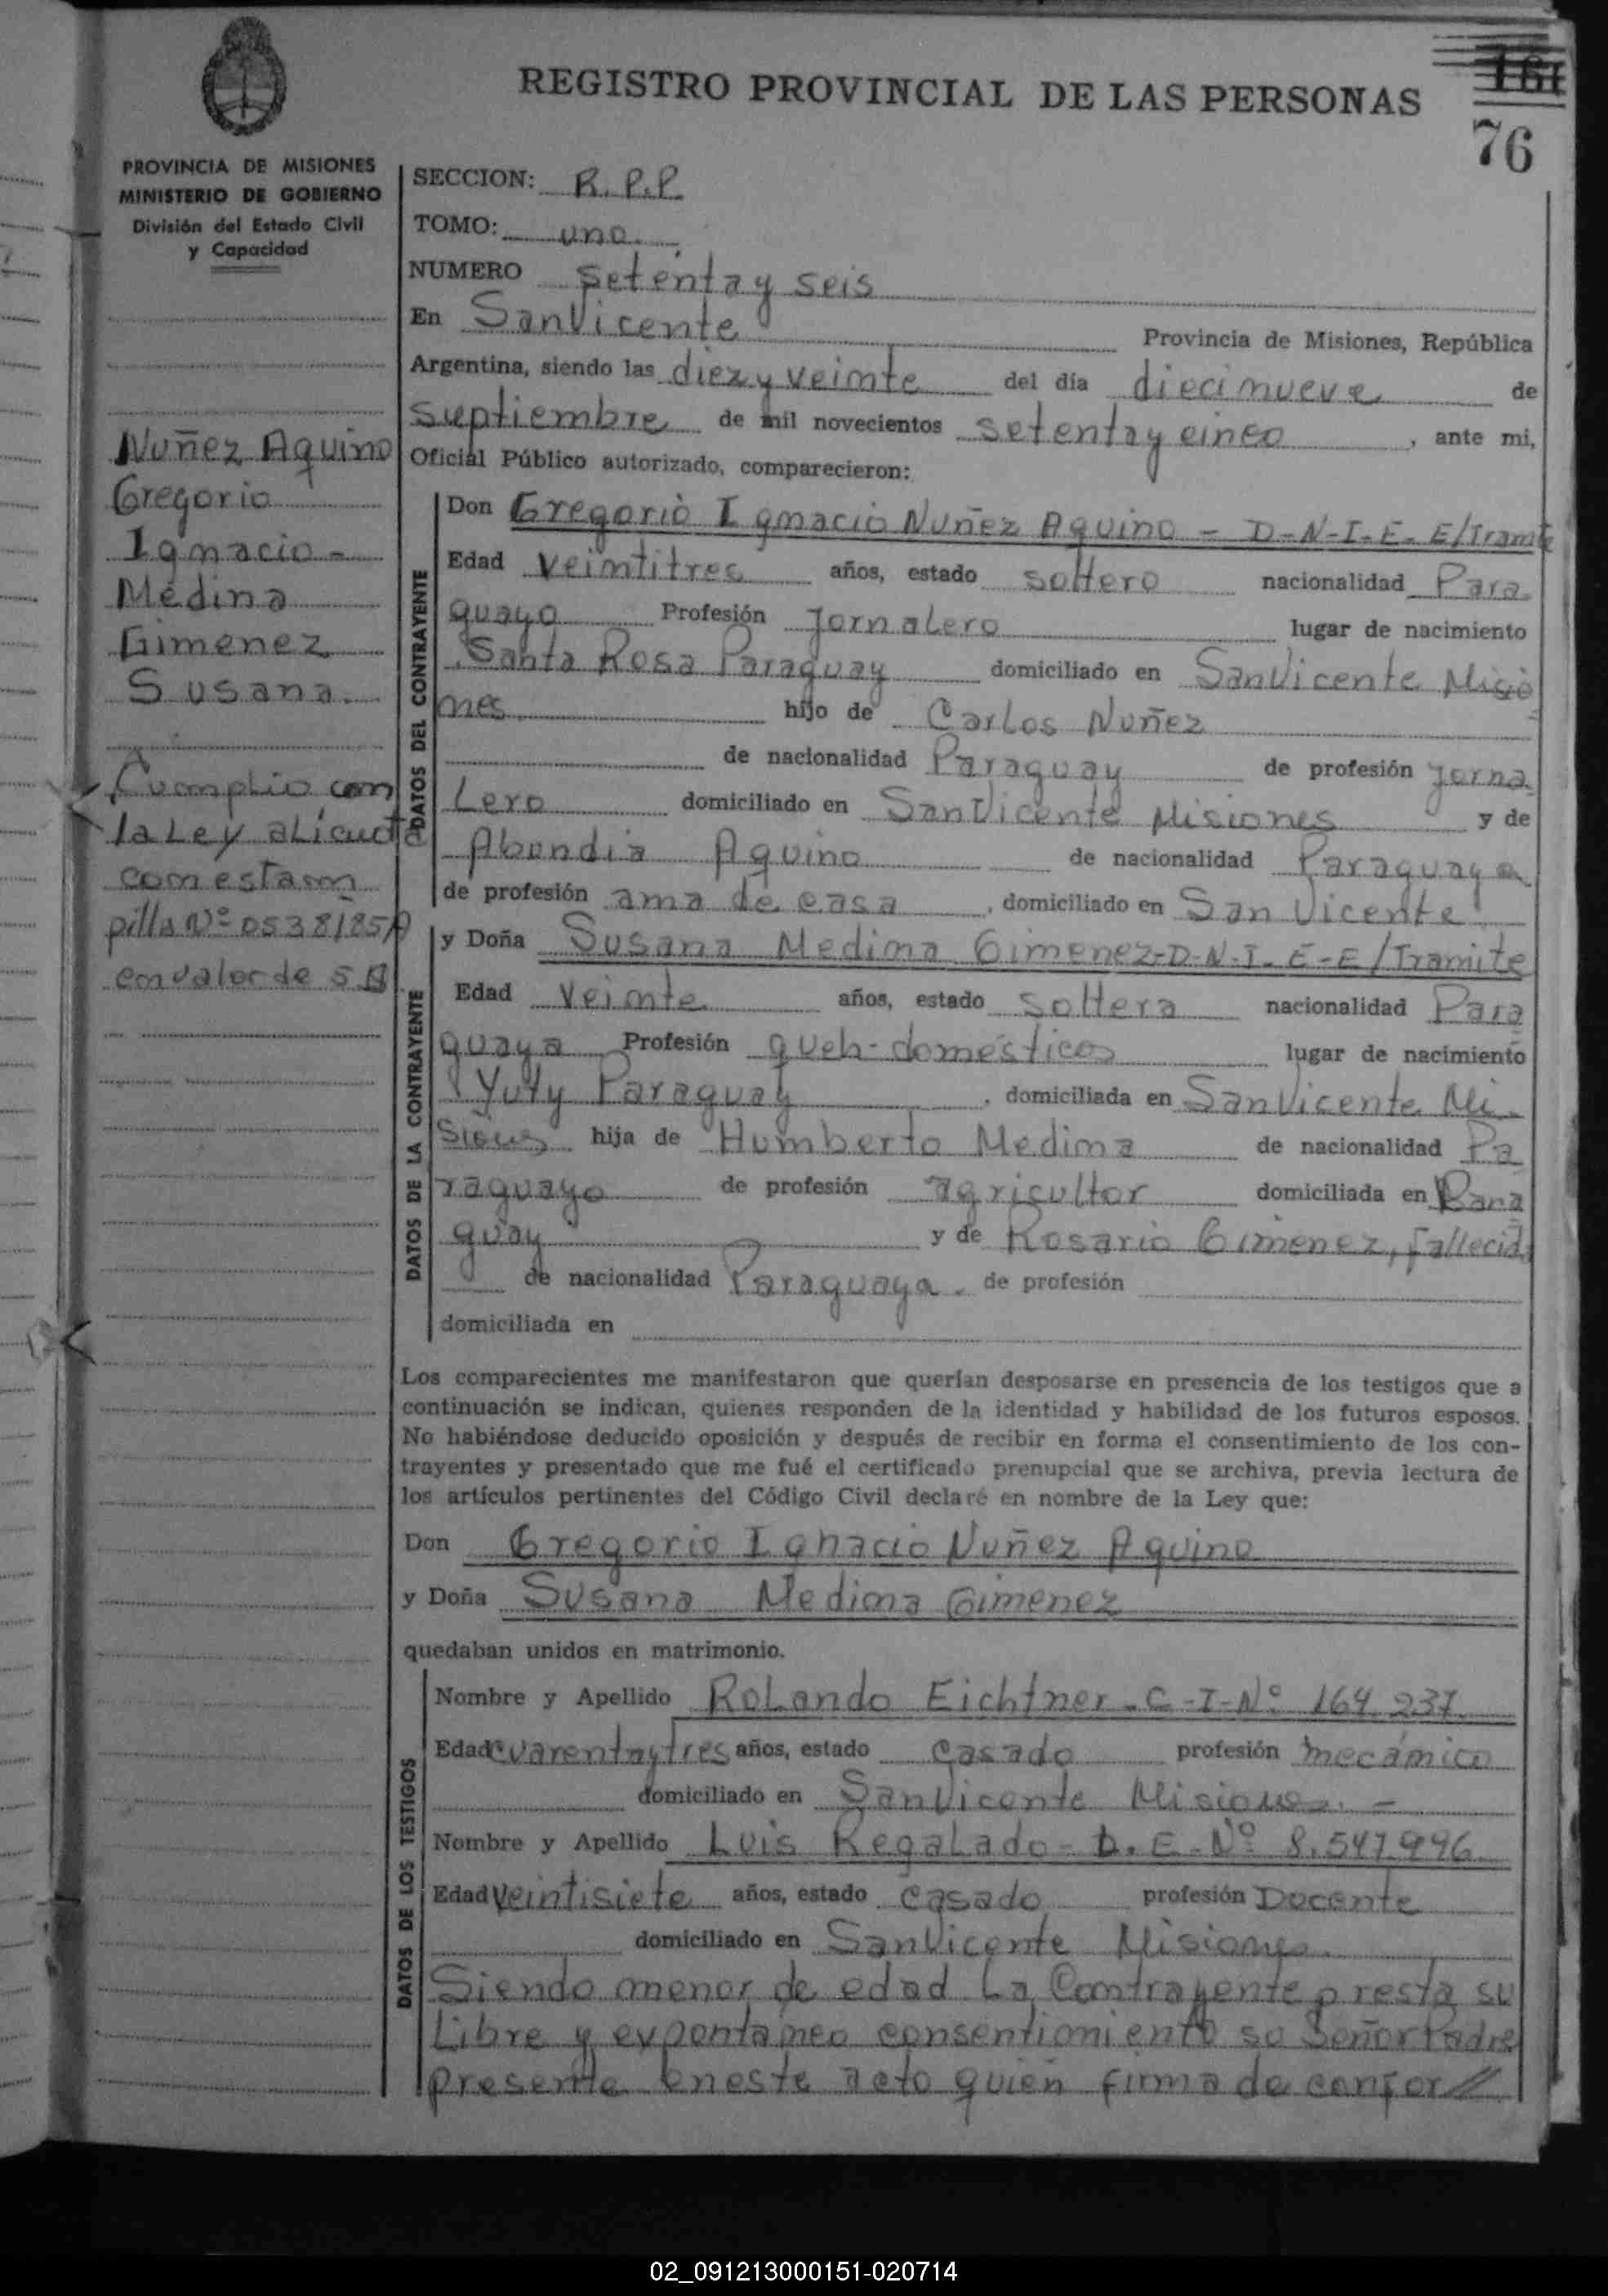 REGISTRO PROVINCIAL DE LAS PERSONAS
161
76
PROVINCIA DE MISIONES
MINISTERIO DE GOBIERNO
División del Estado Civil
y Capacidad
Nuñez Aquino
Gregorio
Ignacio-
Medina
Gimenez
Susana.
Cumplio con
la Ley alicuota
con estam
pilla Nº 0538185A
en valor de 5
SECCION: R.P.P.
TOMO: uno.
NUMERO setenta y seis
En San Vicente Provincia de Misiones, República
Argentina, siendo las diez y veinte del día diecinueve de
septiembre de mil novecientos setenta y cinco, ante mi,
Oficial Público autorizado, comparecieron:
DATOS DEL CONTRAYENTE
Don Gregorio Ignacio Nuñez Aquino - D-N-I-E- E/Tramite
Edad veintitres años, estado soltero nacionalidad Para
guayo Profesión Jornalero lugar de nacimiento
Santa Rosa Paraguay domiciliado en San Vicente Misio
nes hijo de Carlos Nuñez
de nacionalidad Paraguay de profesión jorna
lero domiciliado en San Vicente Misiones y de
Abundia Aquino de nacionalidad Paraguaya
de profesión ama de casa, domiciliado en San Vicente
DATOS DE LA CONTRAYENTE
y Doña Susana Medina Gimenez-D-N-I-E-E/Tramite
Edad Veinte años, estado soltera nacionalidad Para
guaya Profesión queh-domésticos lugar de nacimiento
Yuty Paraguay, domiciliada en San Vicente Mi
siones hija de Humberto Medina de nacionalidad Pa
raguayo de profesión agricultor domiciliada en Para
guay y de Rosario Gimenez, fallecida
de nacionalidad Paraguaya. de profesión
domiciliada en
Los comparecientes me manifestaron que querían desposarse en presencia de los testigos que a
continuación se indican, quienes responden de la identidad y habilidad de los futuros esposos.
No habiéndose deducido oposición y después de recibir en forma el consentimiento de los con-
trayentes y presentado que me fué el certificado prenupcial que se archiva, previa lectura de
los artículos pertinentes del Código Civil declaré en nombre de la Ley que:
Don Gregorio Ignacio Nuñez Aquino
y Doña Susana Medina Gimenez
quedaban unidos en matrimonio.
DATOS DE LOS TESTIGOS
Nombre y Apellido Rolando Eichtner-C-I-Nº 164.237
Edad cuarenta y tres años, estado casado profesión mecánico
domiciliado en San Vicente Misiones. -
Nombre y Apellido Luis Regalado- D.E-Nº 8.547.996
Edad veintisiete años, estado casado profesión Docente
domiciliado en San Vicente Misiones.
Siendo menor de edad la Contrayente presta su
libre y expontaneo consentimiento so Señor Padre
presente en este acto quien firma de confor//
02_091213000151-020714